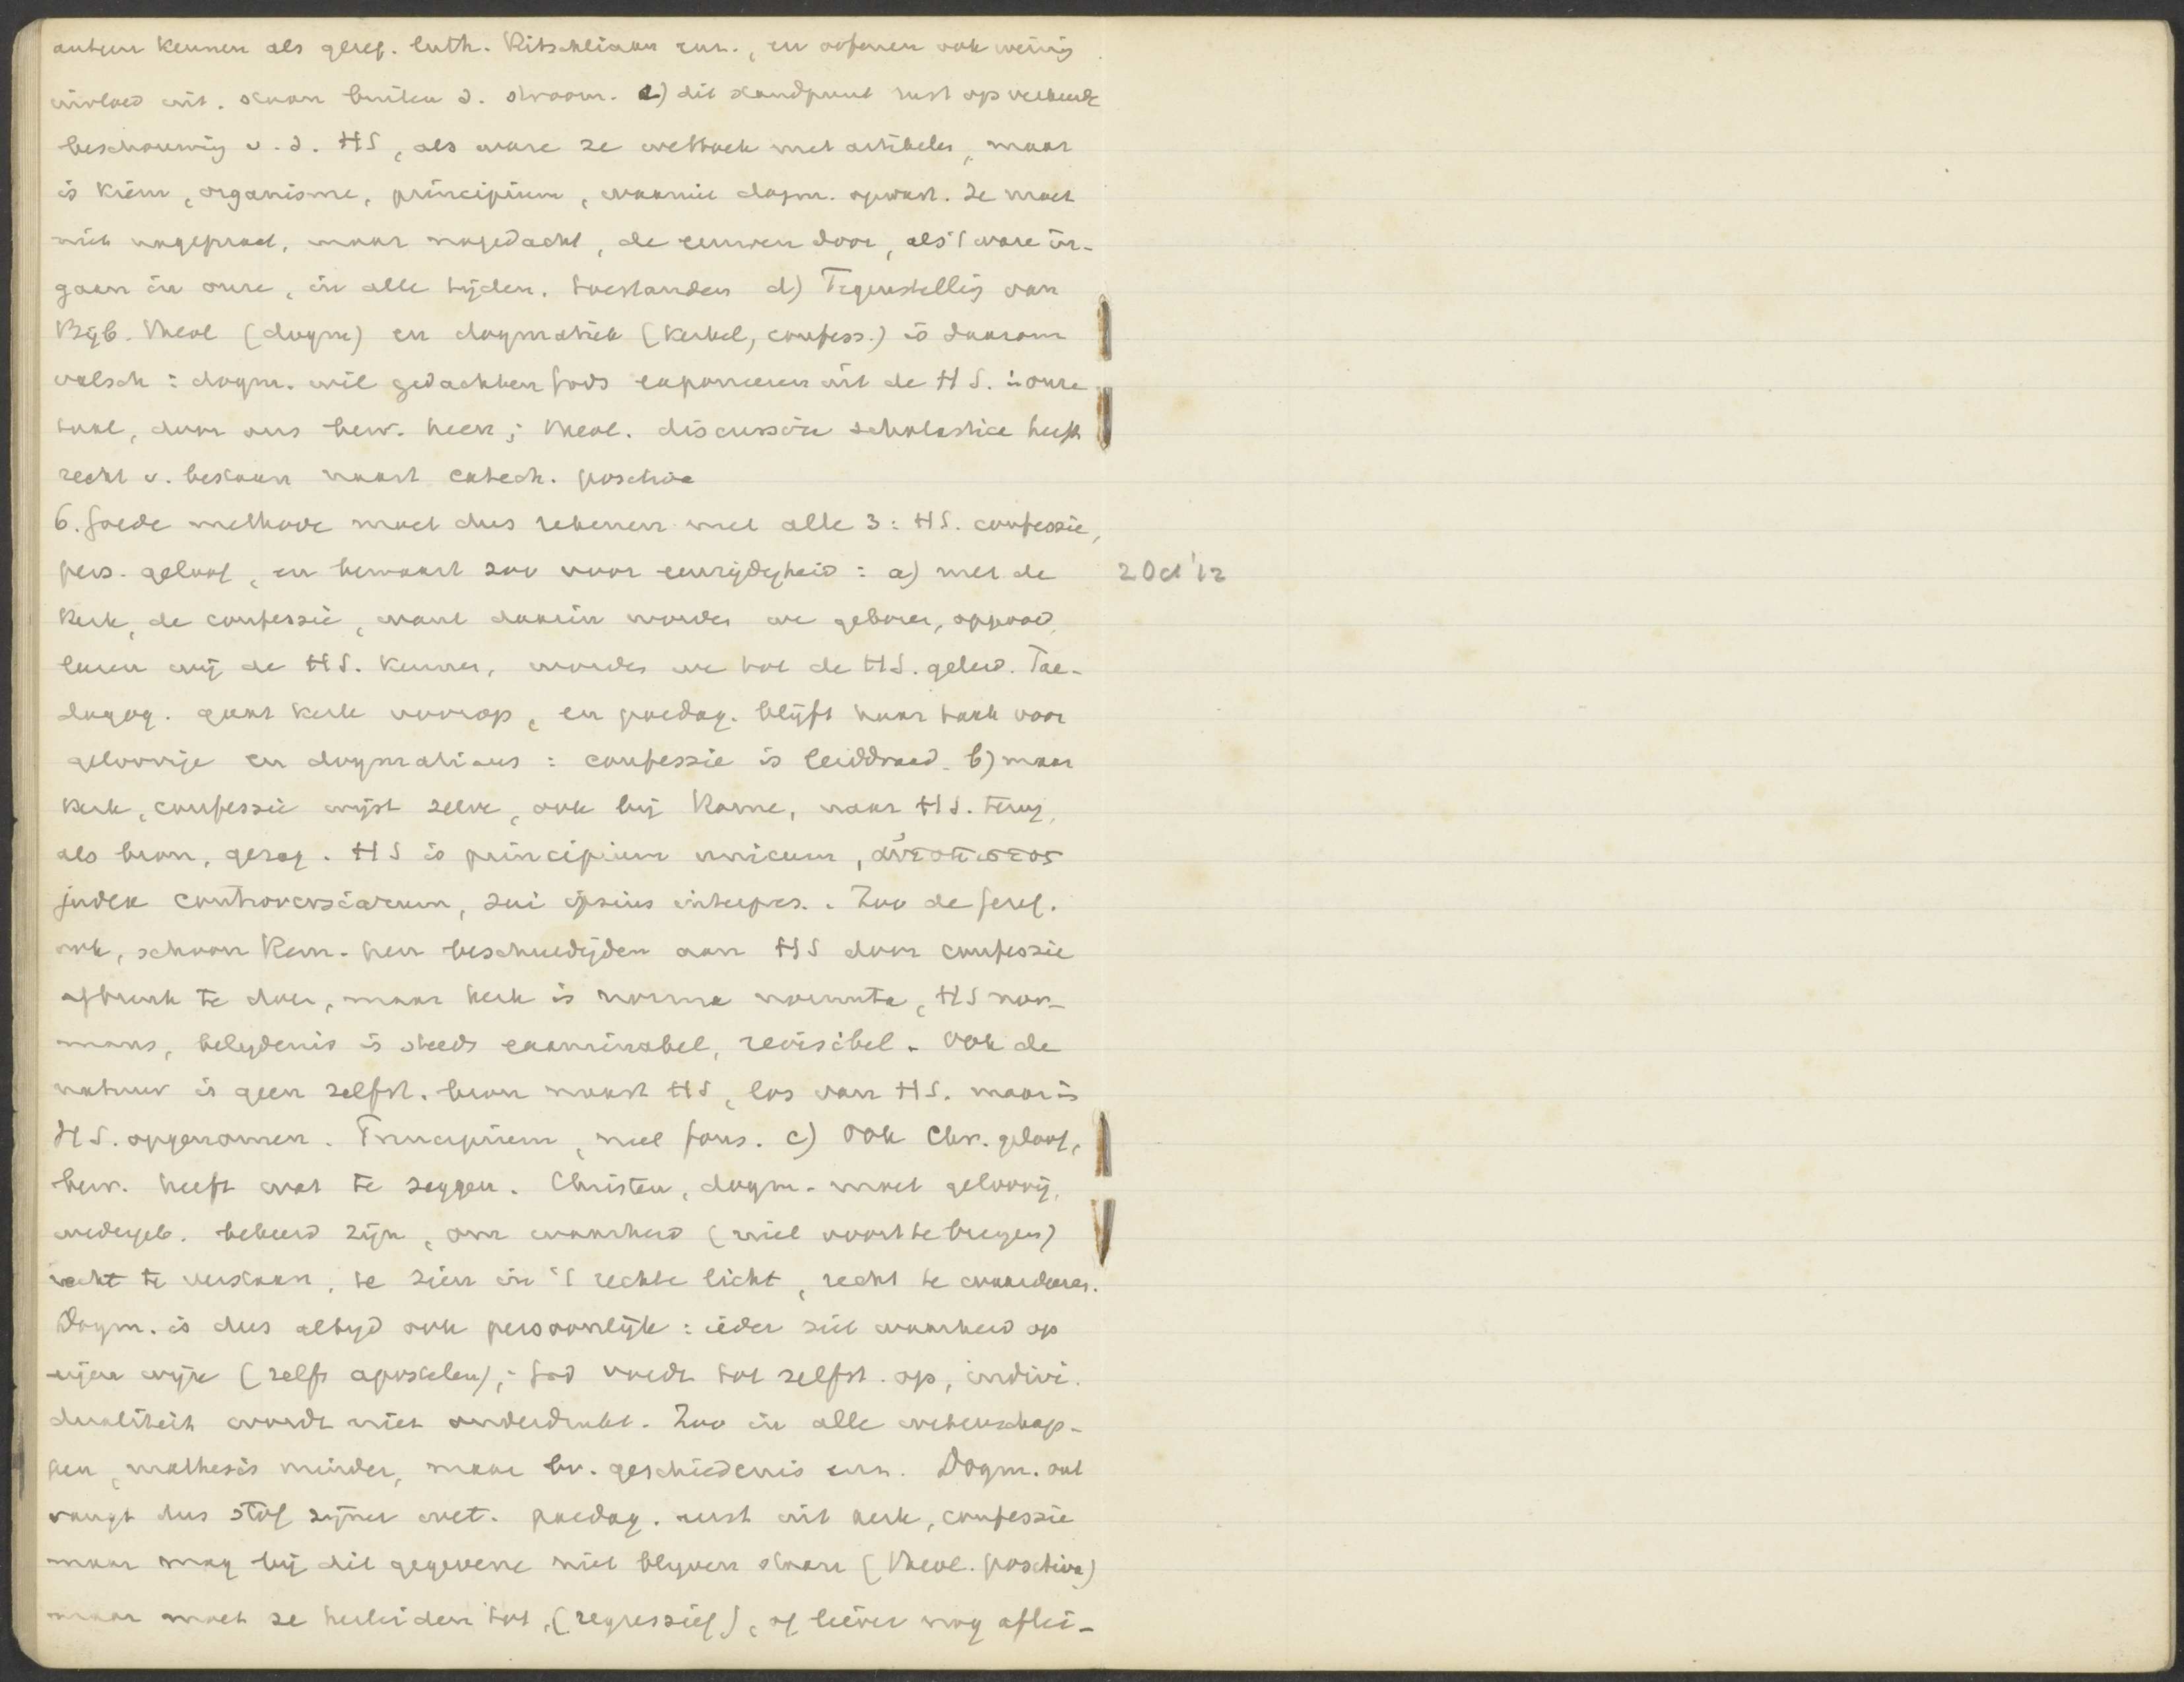 auteur kennen als geref. luth. Ritschliaan enz., en oefenen ook weinig
invloed uit. staan buiten d. stroom. c) dit standpunt rust op verkeerde
beschouwing v. d. HS, als ware ze wetboek met artikelen, maar
is kiem, organisme, principium, waaruit dogm. opwast. Ze moet
niet nagepraat, maar nagedacht, de eeuwen door, als 't ware in-
gaan in onze, in alle tijden, toestanden d) Tegenstelling van
Bijb. theol (dogm) en dogmatiek (kerkel, confess.) is daarom
valsch: dogm. wil gedachten Gods exponeeren uit de HS. in onze
taal, door ons bew. heen; theol. discussiva scholastica heeft
recht v. bestaan naast catech. positiva
6. Goede methode moet dus rekenen met alle 3: HS. confessie,
pers. geloof, en bewaart zoo voor eenzijdigheid: a) met de
Kerk, de confessie, want daarin worden we geboren, opgevoed,
leeren wij de HS. kennen, worden we tot de HS. geleid. Pae-
dagog. gaat kerk voorop, en paedag. blijft haar taak voor
geloovige en dogmaticus: confessie is leiddraad. b) maar
kerk, confessie wijst zelve, ook bij Rome, naar HS. terug,
als bron, gezag. HS is principium unicum, αυτοπιστος
judex controversiarum, sui ipsius interpres. Zoo de Geref.
ook, schoon Rem. hen beschuldigden aan HS door confessie
afbreuk te doen, maar kerk is norma normata, HS nor-
mans, belydenis is steeds examinabel, revisibel. Ook de
natuur is geen zelfst. bron naast HS, los van HS. maar is
HS. opgenomen. Principium, niet fons. c) Ook Chr. geloof,
bew. heeft wat te zeggen. Christen, dogm. moet geloovig,
wedergeb. bekeerd zijn, om waarheid (niet voort te brengen)
recht te verstaan, te zien in 't rechte licht, recht te waardeeren.
Dogm. is dus altyd ook persoonlijk: ieder ziet waarheid op
eigen wijze (zelfs apostelen); God voedt tot zelfst. op, indivi-
dualiteit wordt niet onderdrukt. Zoo in alle wetenschap-
pen, mathesis minder, maar bv. geschiedenis enz. Dogm. ont
vangt dus stof zijner wet. paedag. eerst uit kerk, confessie
maar mag bij dit gegevene niet blyven staan (theol. positiva)
maar moet ze herleiden tot, (regressief), of liever nog aflei-
2 Oct '12